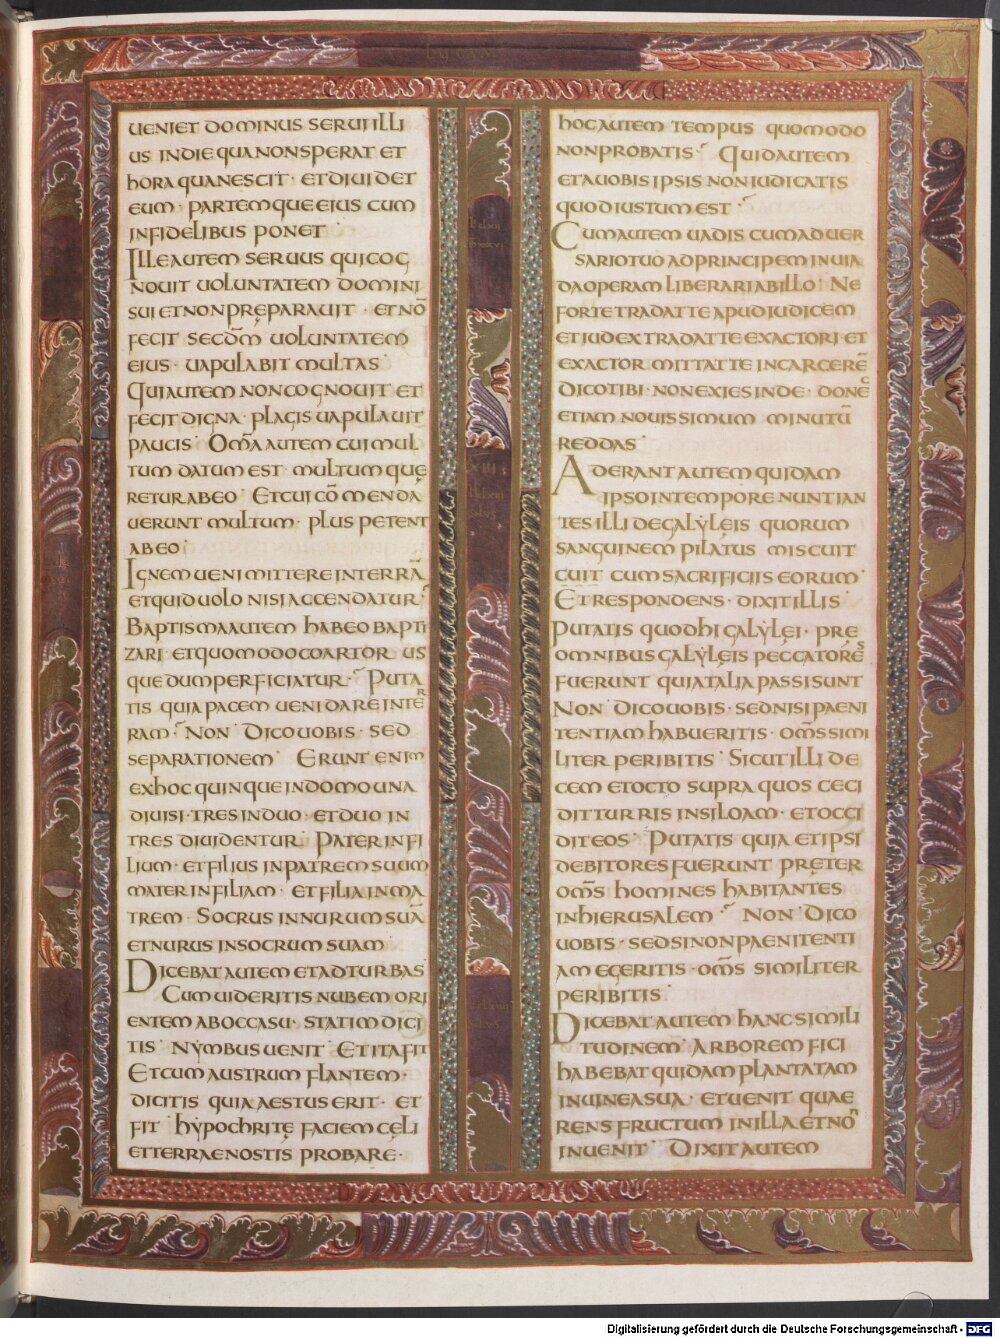 UENIET DOMINUS SERUI ILLI
US IN DIE QUA NON SPERAT ET
HORA QUA NESCIT · ET DIUIDET
EUM · PARTEMQUE EIUS CUM
INFIDELIBUS PONET
ILLE AUTEM SERUUS QUI COG
NOUIT UOLUNTATEM DOMINI
SUI ET NON PRĘPARAUIT · ET NŌ
FECIT SECDM̄ UOLUNTATEM
EIUS · UAPULABIT MULTAS
QUI AUTEM NON COGNOUIT ET
FECIT DIGNA · PLAGIS UAPULAUIT
PAUCIS · OM̄A AUTEM CUI MUL
TUM DATUM EST · MULTUM QUĘ
RETUR AB EO · ET CUI CŌMENDA
UERUNT MULTUM · PLUS PETENT
AB EO ·
IGNEM UENI MITTERE IN TERRĀ
ET QUID UOLO NISI ACCENDATUR
BAPTISMA AUTEM HABEO BAPTI
ZARI ET QUOMODO COARTOR US
QUE DUM PERFICIATUR · PUTA
TIS QUIA PACEM UENI DARE IN TER
RAM · NON DICO UOBIS · SED
SEPARATIONEM ERUNT ENIM
EX HOC QUINQUE IN DOMO UNA
DIUISI · TRES IN DUO · ET DUO IN
TRES DIUIDENTUR PATER IN FI
LIUM · ET FILIUS IN PATREM SUUM
MATER IN FILIAM · ET FILIA IN MA
TREM · SOCRUS IN NURUM SUĀ
ET NURUS IN SOCRUM SUAM
DICEBAT AUTEM ET AD TURBAS
CUM UIDERITIS NUBEM ORI
ENTEM AB OCCASU · STATIM DICI
TIS NẎMBUS UENIT ET ITA FIT
ET CUM AUSTRUM FLANTEM ·
DICITIS QUIA AESTUS ERIT · ET
FIT HẎPOCHRITĘ FACIEM CĘLI
ET TERRAE NOSTIS PROBARE ·
HOC AUTEM TEMPUS QUOMODO
NON PROBATIS · QUID AUTEM
ET A UOBIS IPSIS NON IUDICATIS
QUOD IUSTUM EST ·
CUM AUTEM UADIS CUM ADUER
SARIO TUO AD PRINCIPEM IN UIA
DA OPERAM LIBERARI AB ILLO NE
FORTE TRADAT TE APUD IUDICEM
ET IUDEX TRADAT TE EXACTORI · ET
EXACTOR MITTAT TE IN CARCERĒ
DICO TIBI · NON EXIES INDE · DONEC
ETIAM NOUISSIMUM MINUTŪ
REDDAS ·
ADERANT AUTEM QUIDAM
IPSO IN TEMPORE NUNTIAN
TES ILLI DE GALẎLĘIS QUORUM
SANGUINEM PILATUS MISCUIT
CUIT CUM SACRIFICIIS EORUM ·
ET RESPONDENS · DIXIT ILLIS
PUTATIS QUOD HI GALẎLĘI · PRĘ
OMNIBUS GALẎLĘIS PECCATORES
FUERUNT QUIA TALIA PASSI SUNT
NON DICO UOBIS · SED NISI PAENI
TENTIAM HABUERITIS · OM̄S SIMI
LITER PERIBITIS SICUT ILLI DE
CEM ET OCTO SUPRA QUOS CECI
DIT TURRIS IN SILOAM · ET OCCI
DIT EOS · PUTATIS QUIA ET IPSI
DEBITORES FUERUNT PRĘTER
OM̄S HOMINES HABITANTES
IN HIERUSALEM NON DICO
UOBIS · SED SI NON PAENITENTI
AM EGERITIS · OM̄S SIMILITER
PERIBITIS ·
DICEBAT AUTEM HANC SIMILI
TUDINEM · ARBOREM FICI
HABEBAT QUIDAM PLANTATAM
IN UINEA SUA · ET UENIT QUAE
RENS FRUCTUM IN ILLA ET NON
INUENIT DIXIT AUTEM
Digitalisierung gefördert durch die Deutsche Forschungsgemeinschaft - DFG